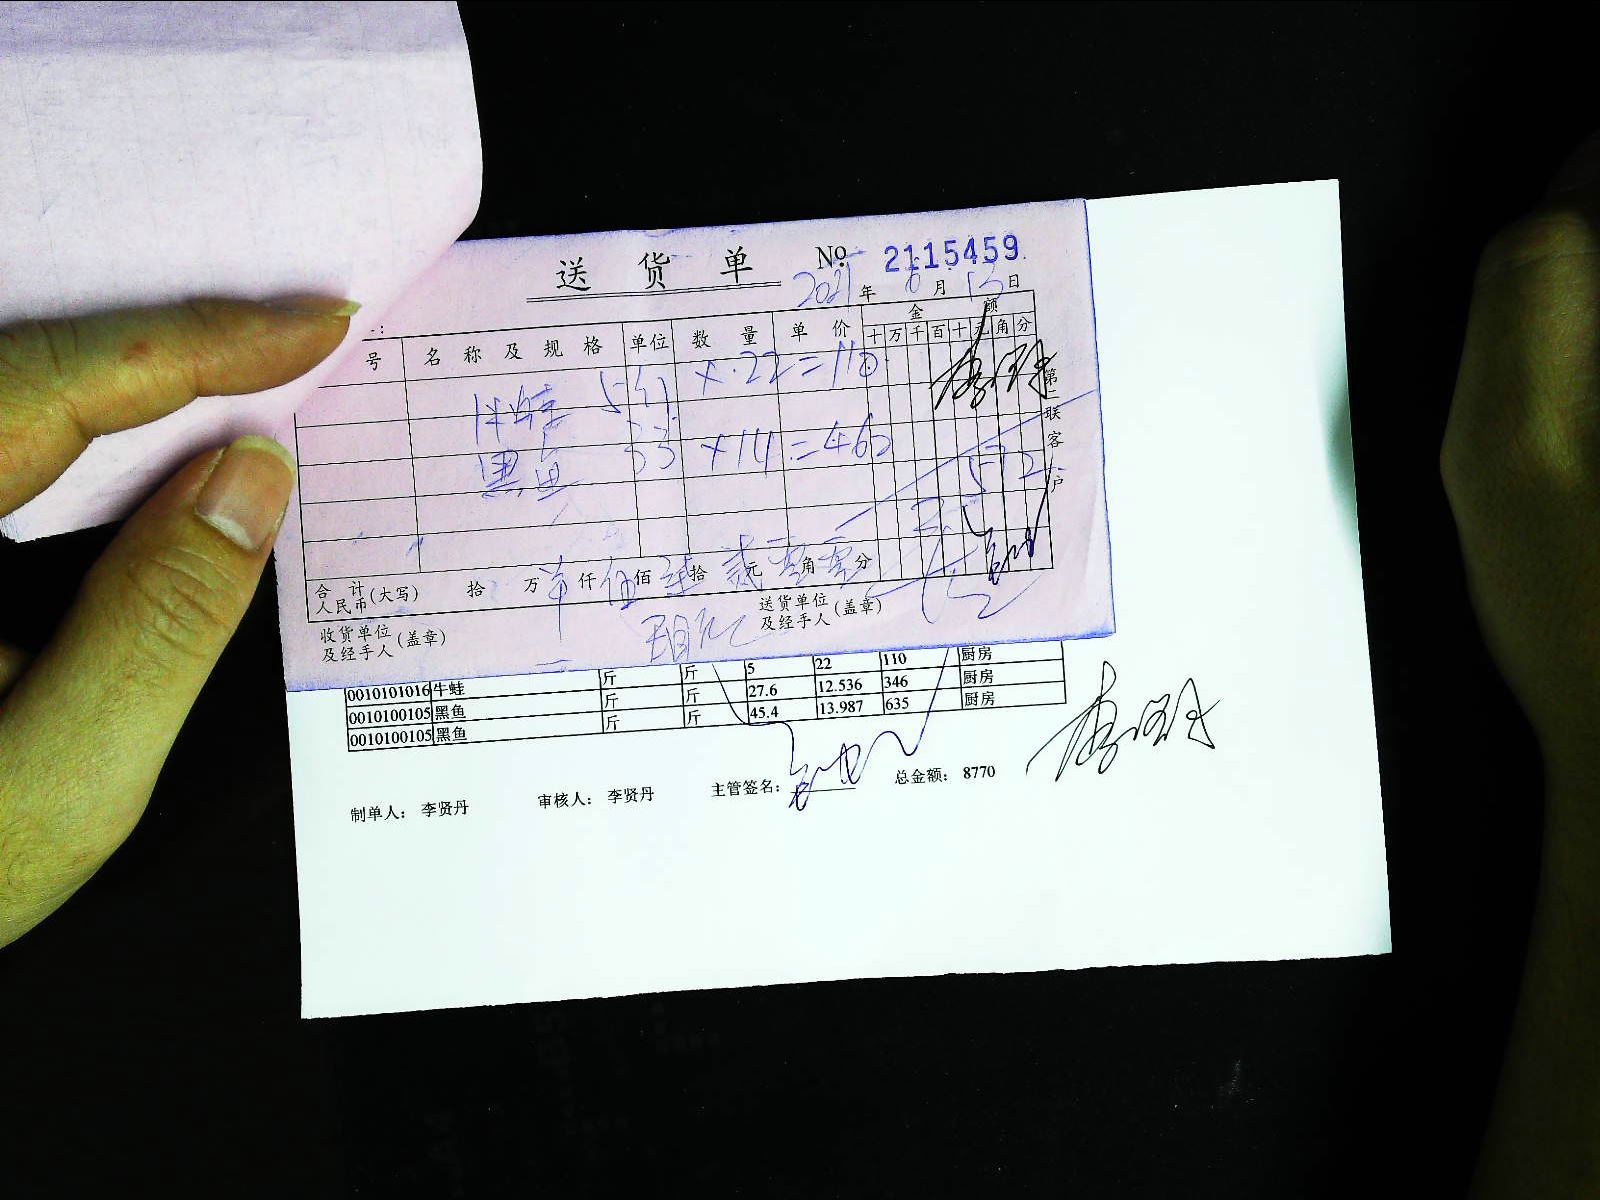 送 货 单 No. 2115459
2021 年 6 月 13 日
号 名 称 及 规 格 单位 数 量 单 价 金 额
十 万 千 百 十 元 角 分
牛蛙 5斤 × 22 = 110
黑鱼 33 × 14 = 462
572
第二联客户
合 计
人民币(大写) 拾 万 仟 伍 佰 拾 贰 元 零 角 零 分
收货单位
及经手人(盖章)
送货单位
及经手人(盖章)
0010101016 牛蛙 斤 斤 5 22 110 厨房
0010100105 黑鱼 斤 斤 27.6 12.536 346 厨房
0010100105 黑鱼 斤 斤 45.4 13.987 635 厨房
制单人: 李贤丹 审核人: 李贤丹 主管签名: 总金额: 8770